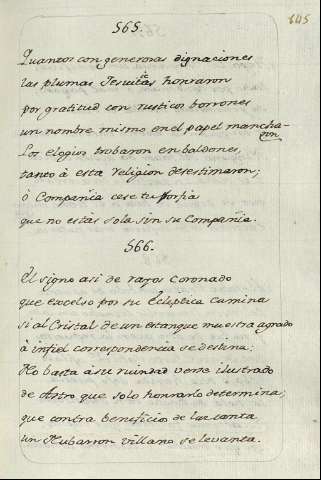 565.
145
Quantos con generosas dignaciones
las plumas Jesuitas honraron
por gratitud con rusticos borrones
un nombre mismo en el papel mancharon
Los elogios trobaron en baldones,
tanto à esta religion desestimaron;
ò Compañia cese tu porfia
que no estàs sola sin su Compañia.
566.
El signo asi de rayos coronado
que excelso por su Ecliptica camina
si al Cristal de un estanque muestra agrado
à infiel correspondencia se destina:
No basta à su ruindad verse ilustrado
de Astro que solo honrarlo determina;
que contra beneficios de luz tanta
un Nubarron villano se levanta.